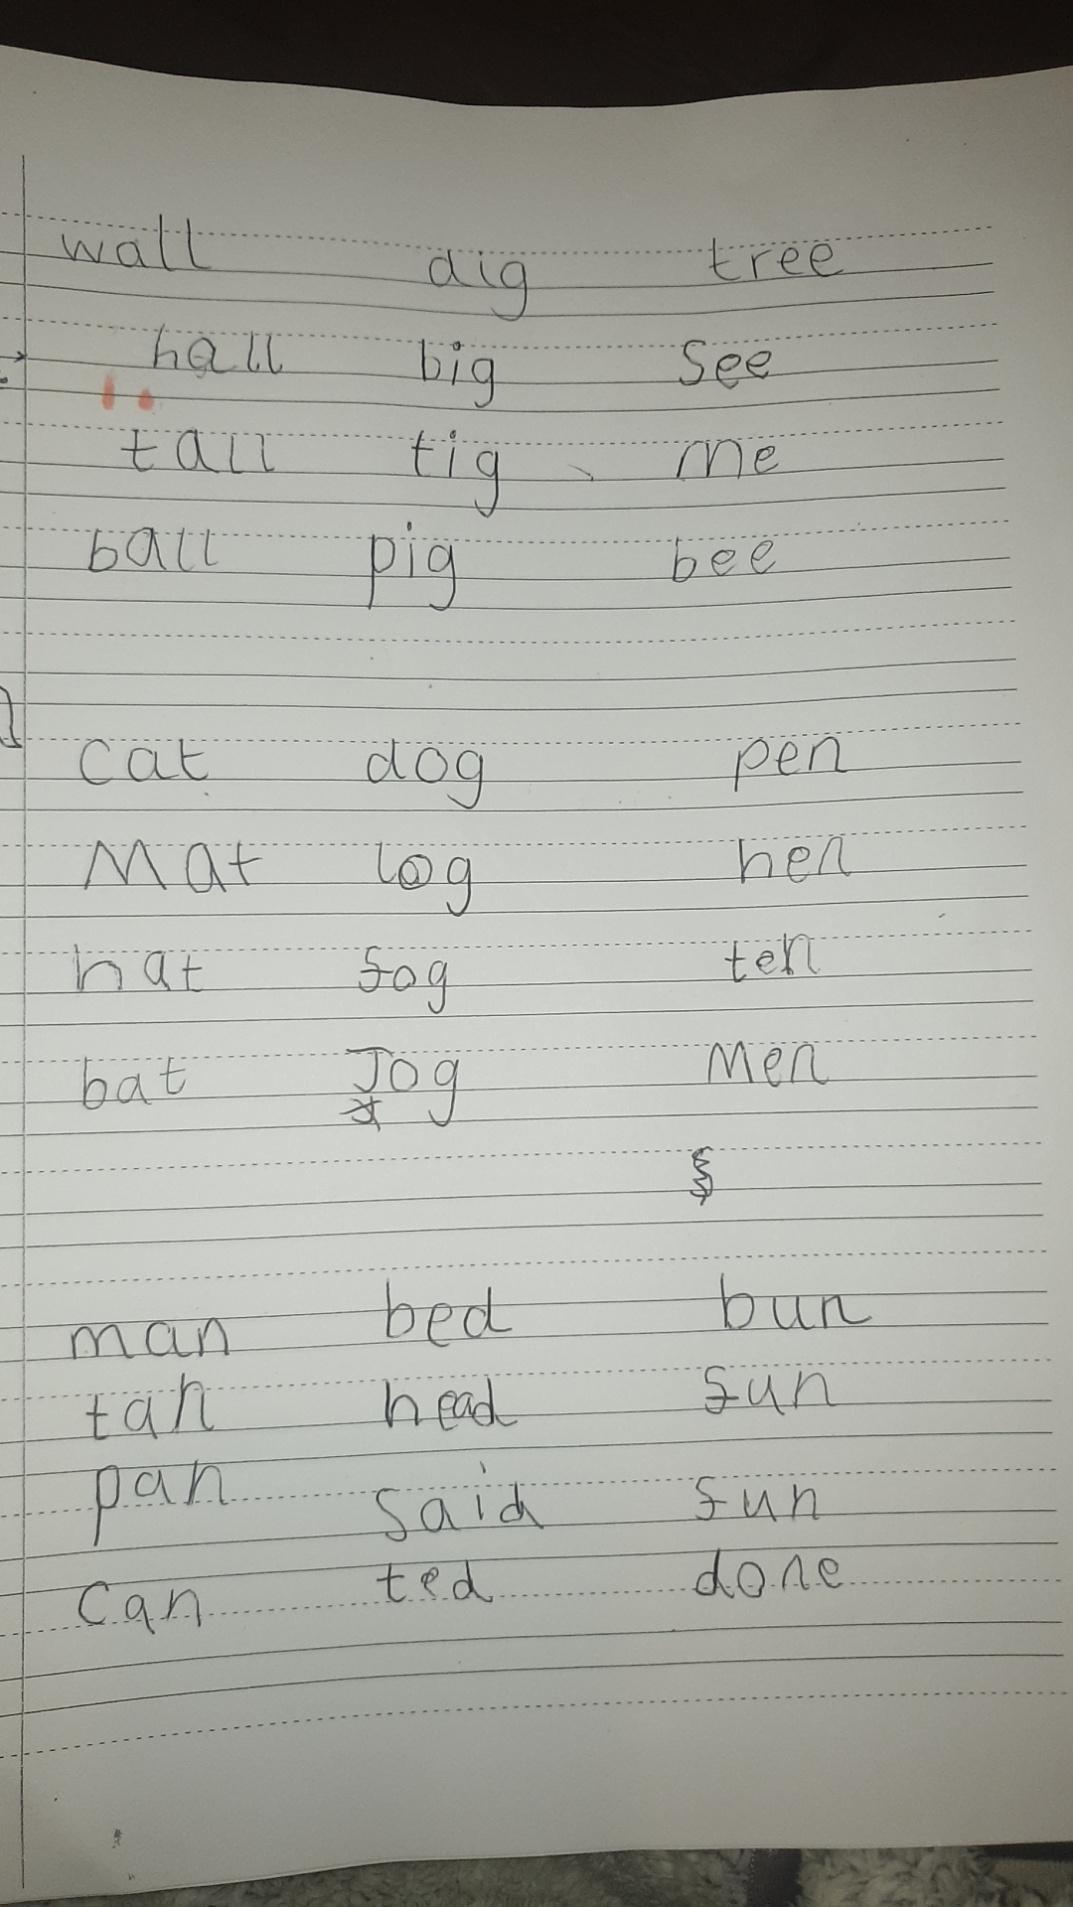 wall dig tree
hall big See
tall tig me
ball pig bee
cat dog pen
Mat log hen
hat fog ten
bat Jog Men
man bed bun
tan head fun
pan said fun
can ted done